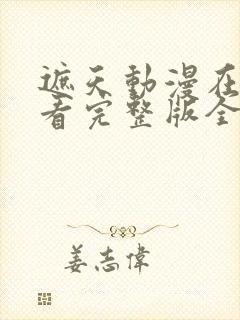 遮天動漫在
看完整版全
姜志偉